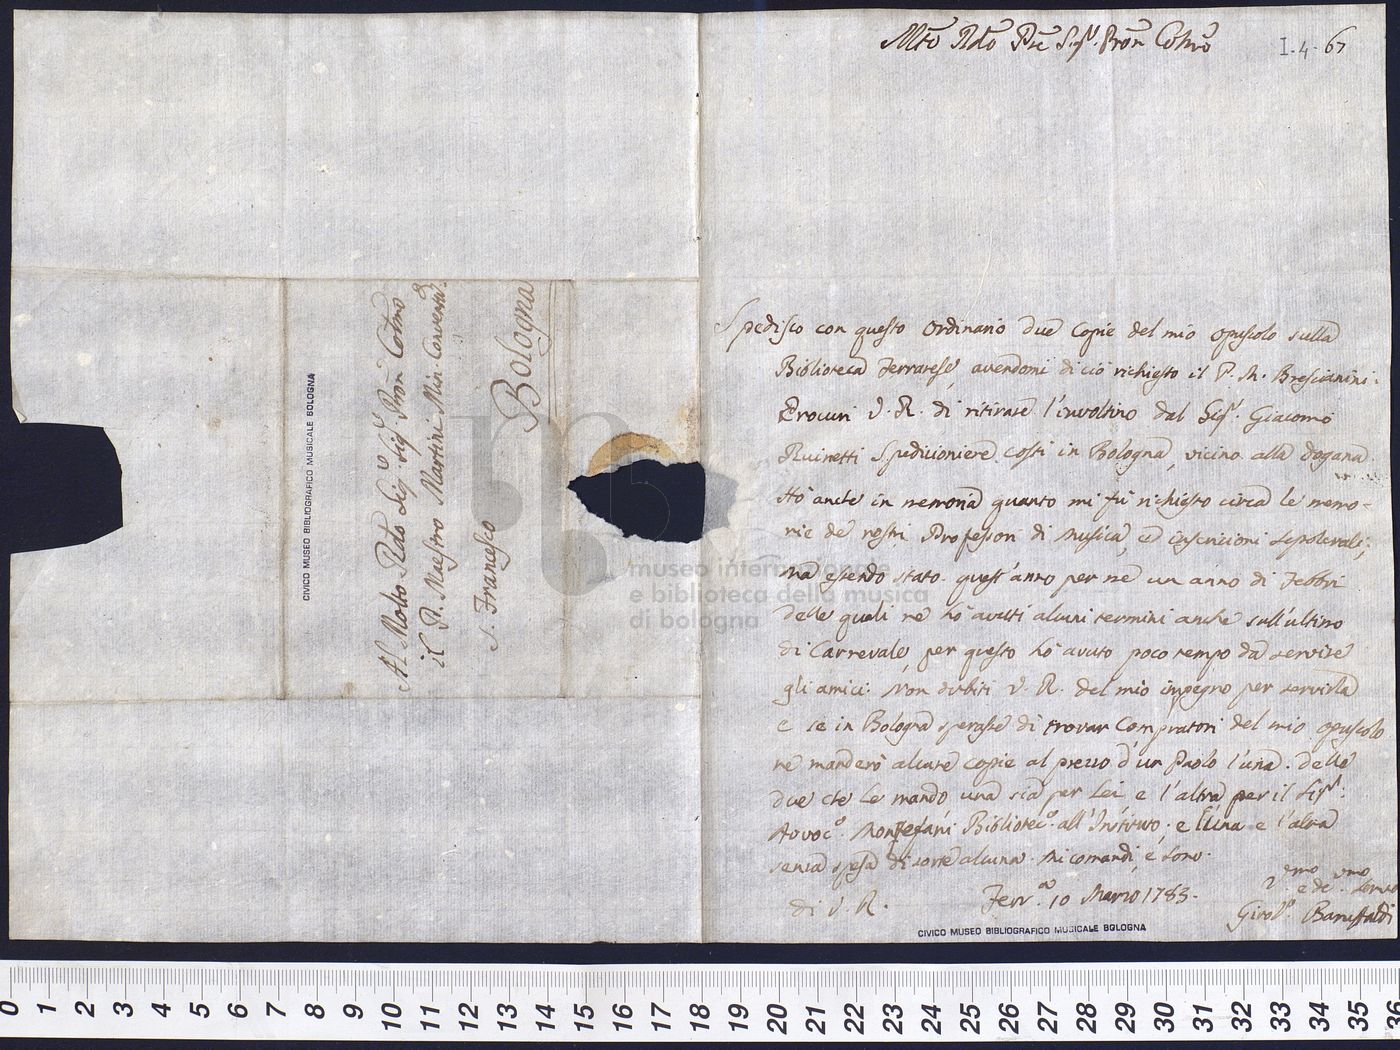 Mto Rdo Pre Sigr. Pron Colmo
I-4-67
Spedisco con questo ordinario due copie del mio opuscolo sulla
Biblioteca Ferrarese, avendomi di ciò richiesto il P. M. Brescianini.
Procuri V. R. di ritirare l'involtino dal Sigr. Giacomo
Ruinetti Spedizioniere costì in Bologna, vicino alla dogana.
Hò anche in memoria quanto mi fù richiesto circa le memo-
rie de nostri Professori di Musica, ed inscrizioni sepolcrali;
ma essendo stato quest'anno per me un anno di Febbri
delle quali ne hò avuti alcuni termini anche sull'ultimo
di Carnevale, per questo hò avuto poco tempo da servire
gli amici. Non dubiti V. R. del mio impegno per servirla
e se in Bologna sperasse di trovar Compratori del mio opuscolo
ne manderò alcune copie al prezzo d'un Paolo l'una. Delle
due che Le mando, una sia per Lei, e l'altra per il Sigr.
Avvoc.o Montefani Bibliotec.o all'Instituto, e l'una e l'altra
senza spesa di sorte alcuna. Mi comandi, e sono.
di V. R.
Ferr.a 10 Marzo 1783.
Girol.o Baruffaldi
CIVICO MUSEO BIBLIOGRAFICO MUSICALE BOLOGNA
Al Molto Rdo Sigr Sigr Pron Colmo
il P. Maestro Martini Min. Convent.
S. Francesco
Bologna
CIVICO MUSEO BIBLIOGRAFICO MUSICALE BOLOGNA
museo internazionale
e biblioteca della musica
di bologna
0 1 2 3 4 5 6 7 8 9 10 11 12 13 14 15 16 17 18 19 20 21 22 23 24 25 26 27 28 29 30 31 32 33 34 35 36